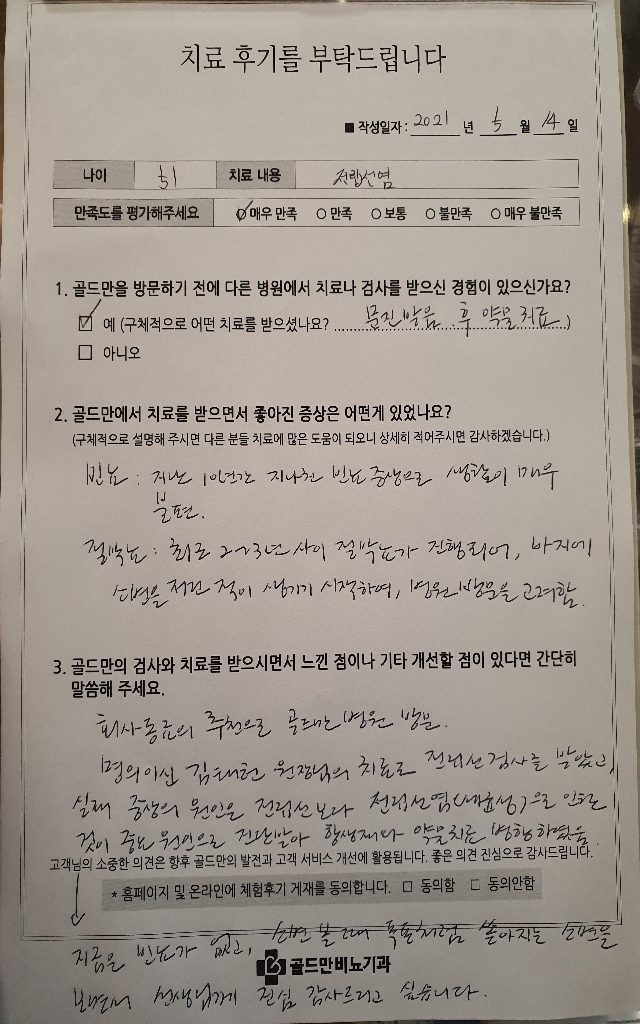 치료 후기를 부탁드립니다
■ 작성일자 : 2021 년 5 월 14 일
나이 51 치료 내용 전립선염
만족도를 평가해주세요 매우 만족 ○ 만족 ○ 보통 ○ 불만족 ○ 매우 불만족
1. 골드만을 방문하기 전에 다른 병원에서 치료나 검사를 받으신 경험이 있으신가요?
☑ 예 (구체적으로 어떤 치료를 받으셨나요? 문진 받음 후 약물치료 )
□ 아니오
2. 골드만에서 치료를 받으면서 좋아진 증상은 어떤게 있었나요?
(구체적으로 설명해 주시면 다른 분들 치료에 많은 도움이 되오니 상세히 적어주시면 감사하겠습니다.)
빈뇨 : 지난 10년간 지나친 빈뇨 증상으로 생활이 매우
불편.
절박뇨 : 최근 2~3년 사이 절박뇨가 진행되어, 바지에
소변을 저린 적이 생기기 시작하여, 병원 방문을 고려함.
3. 골드만의 검사와 치료를 받으시면서 느낀 점이나 기타 개선할 점이 있다면 간단히
말씀해 주세요.
회사동료의 추천으로 골드만병원 방문.
명의이신 김태헌 원장님의 치료로 전립선 검사를 받았고,
실제 증상의 원인은 전립선보다 전립선염(세균성)으로 인한
것이 주요 원인으로 진단받아 항생제와 약물치료 병행하였음.
고객님의 소중한 의견은 향후 골드만의 발전과 고객 서비스 개선에 활용됩니다. 좋은 의견 진심으로 감사드립니다.
* 홈페이지 및 온라인에 체험후기 게재를 동의합니다. □ 동의함 □ 동의안함
지금은 빈뇨가 없고, 소변 볼 때 폭포처럼 쏟아지는 소변을
골드만비뇨기과
보면서 선생님께 진심 감사드리고 싶습니다.